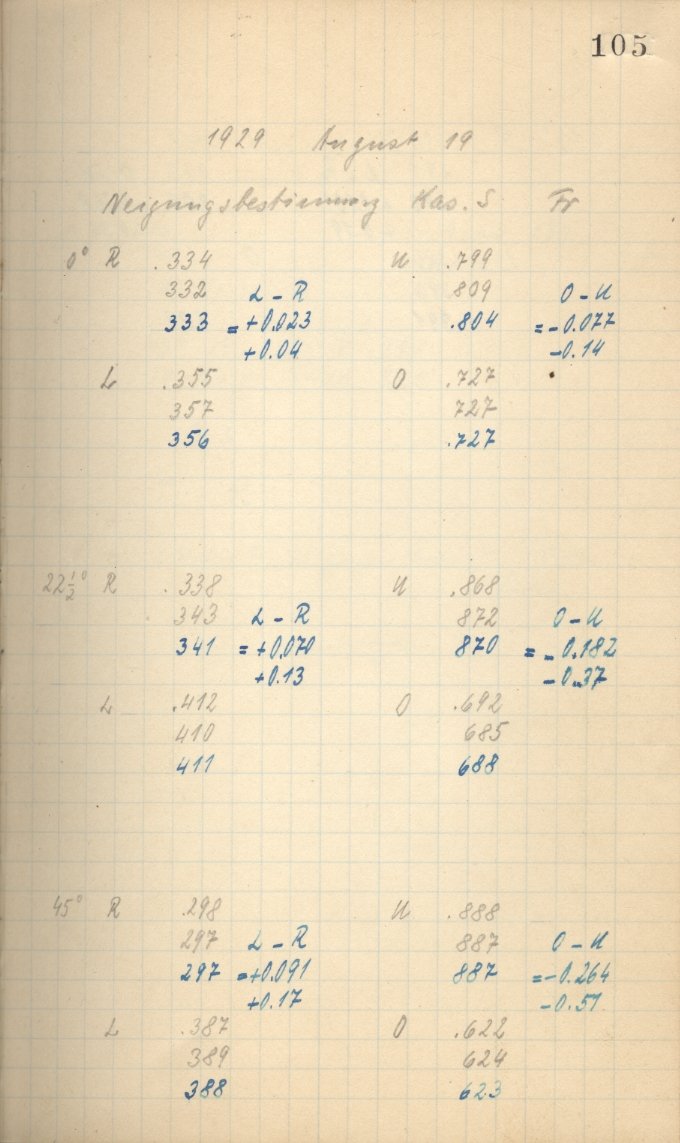 105
1929 August 19
Neigungsbestimmung Kas. S Fr
0° R .334 U .799
332 L - R 809 O - U
333 = +0.023 .804 = -0.077
+0.04 -0.14
L .355 O .727
357 727
356 .727
22 1/2° R .338 U .868
343 L - R 872 O - U
341 = +0.070 870 = -0.182
+0.13 -0.37
L .412 O .692
410 685
411 688
45° R .298 U .888
297 L - R 887 O - U
297 = +0.091 887 = -0.264
+0.17 -0.51
L .387 O .622
389 624
388 623